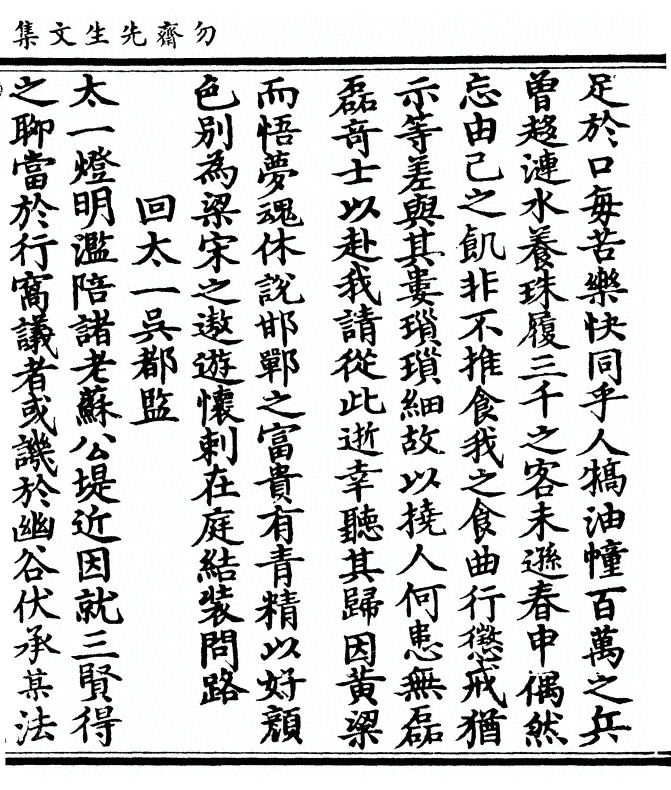 勿齋先生文集
足於口每苦樂快同乎人犒油幢百萬之兵
曾趍漣水養珠履三千之客未遜春申偶然
忘由己之飢非不推食我之食曲行懲戒猶
示等差與其婁瑣瑣細故以撓人何患無磊
磊竒士以赴我請從此逝幸聽其歸因黃粱
而悟夢魂休說邯鄲之富貴有青精以好顏
色別為梁宋之遨遊懷刺在庭結裝問路
回太一吳都監
太一燈明濫陪諸老蘇公堤近因就三賢得
之聊當於行窩議者或譏於幽谷伏承某法